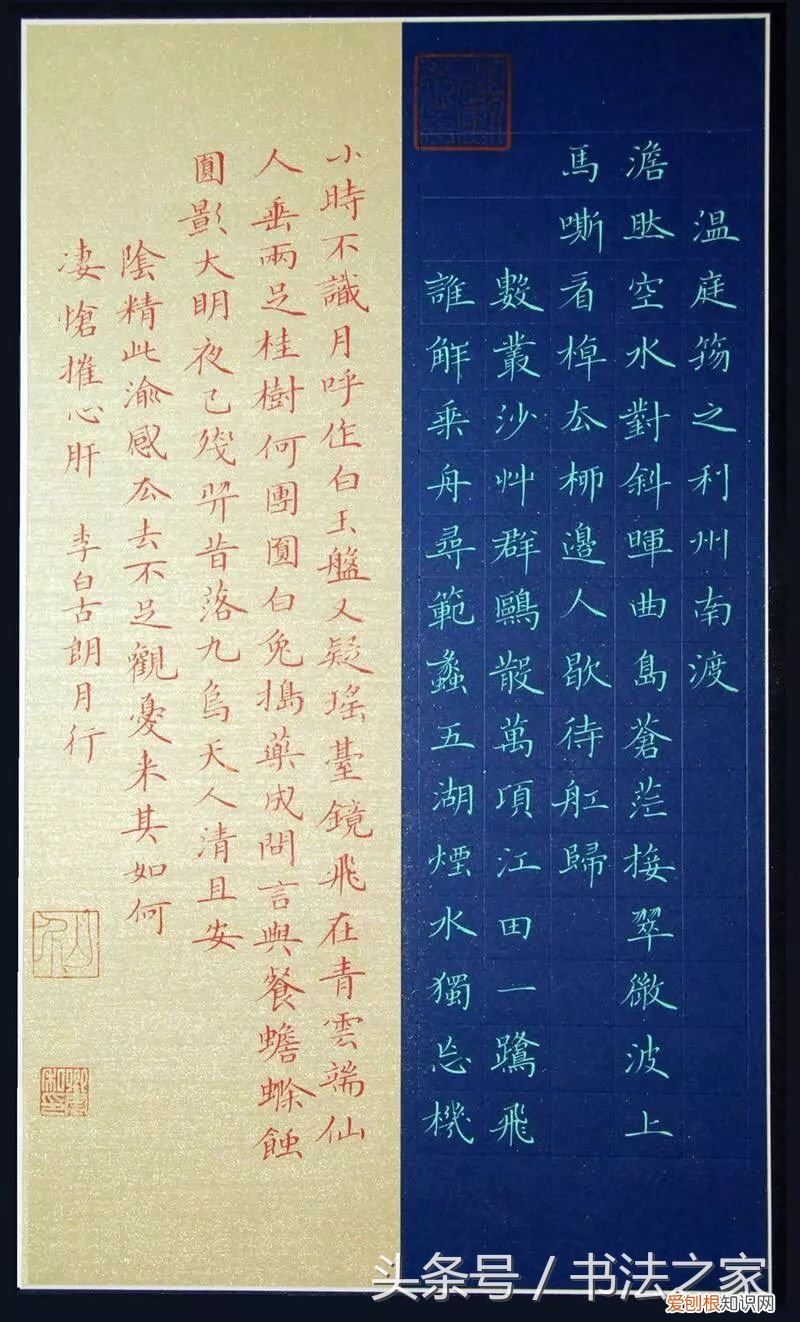 温庭筠之利州南渡
澹然空水對斜暉曲島蒼茫接翠微波上
馬嘶看棹去柳邊人歇待舡歸
數叢沙艸群鷗散萬頃江田一鷺飛
誰解乗舟尋範蠡五湖煙水獨忘機
小時不識月呼作白玉盤又疑瑤臺鏡飛在青雲端仙
人垂兩足桂樹何團圓白兔搗藥成問言與餐蟾蜍蝕
圓影大明夜已殘羿昔落九烏天人清且安
陰精此渝感去去不足觀憂来其如何
凄愴摧心肝 李白古朗月行
头条号 / 书法之家
爱刨根知识网